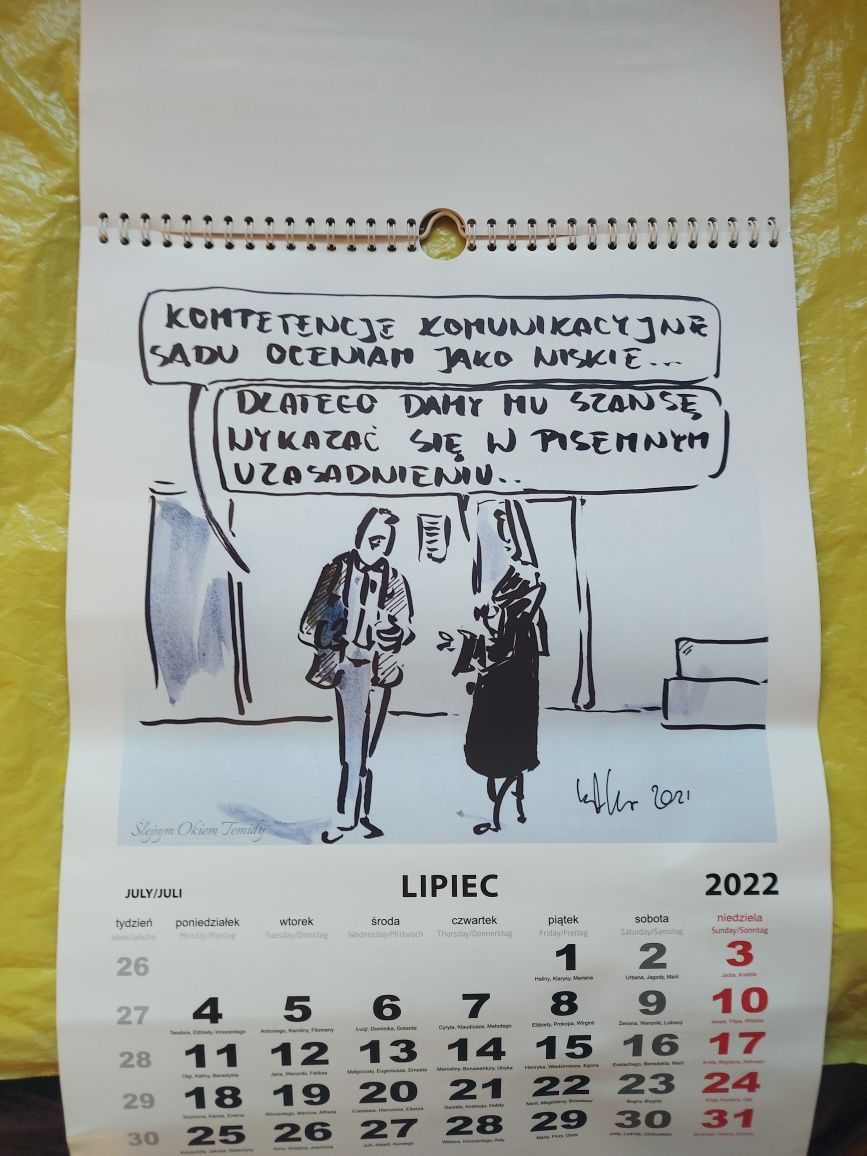 KOMPETENCJE KOMUNIKACYJNE
SĄDU OCENIAM JAKO NISKIE...
DLATEGO DAMY MU SZANSĘ
WYKAZAĆ SIĘ W PISEMNYM
UZASADNIENIU..
2021
Ślepym Okiem Temidy
JULY/JULI LIPIEC 2022
tydzień poniedziałek wtorek środa czwartek piątek sobota niedziela
Week/Woche Monday/Montag Tuesday/Dienstag Wednesday/Mittwoch Thursday/Donnerstag Friday/Freitag Saturday/Samstag Sunday/Sonntag
26 1 2 3
Haliny, Klarysy, Mariana Urbana, Jagody, Marii Jacka, Anatola
27 4 5 6 7 8 9 10
Teodora, Elżbiety, Innocentego Antoniego, Karoliny, Filomeny Łucji, Dominika, Gotarda Cyryla, Klaudiusza, Metodego Elżbiety, Prokopa, Wirginii Zenona, Weroniki, Lukrecji
28 11 12 13 14 15 16 17
Olgi, Kaliny, Benedykta Jana, Weroniki, Feliksa Małgorzaty, Eugeniusza, Ernesta Marceliny, Bonawentury, Ulryka Henryka, Włodzimierza, Egona Eustachego, Benedykta, Marii
29 18 19 20 21 22 23 24
Szymona, Kamila, Erwina Wincentego, Marcina, Alfreda Czesława, Hieronima, Eliasza Daniela, Andrzeja, Ożidy Marii, Magdaleny, Bolesławy Bogny, Brygidy
30 25 26 27 28 29 30 31
Krzysztofa, Jakuba, Walentyny Anny, Grażyny, Joachima Julii, Natalii, Aureliego Wiktora, Innocentego, Aidy Marty, Flory, Olafa Julity, Ludmiły, Zdobysława